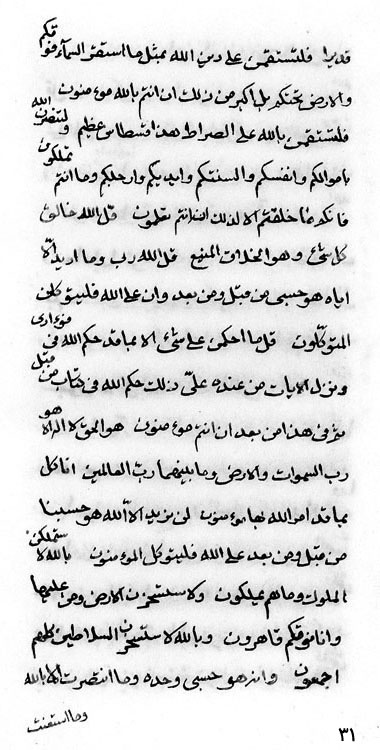 قديرا فلتستقمن على دين الله بمثل ما استقر السمآء فوقكم
والارض تحتكم بل اكبر من ذلك ان انتم بالله موءمنون
فلتستقمن بالله على الصراط هذا قسطاس عظيم ولتنصرن الله
باموالكم وانفسكم والسنتكم وايديكم وارجلكم وما انتم تملكون
فانكم ما خلقتم الا لذلك ان انتم تعلمون قل الله خالق
كل شيء وهو الخلاق المنيع قل الله رب وما اريد الا
اياه هو حسبى من قبل ومن بعد وان على الله فليتوكلن
المتوكلون قل ما احكمن على شيء الا مما قد حكم الله فى
ونزل الايات من عنده على ذلك حكم الله فى كتاب من قبل
فى هذا من بعد ان انتم موءمنون هو الحق لا اله الا هو
رب السموات والارض وما بينهما رب العالمين انا كل
بما قد امر الله لن نريد الا الله هو حسبنا
من قبل ومن بعد على الله فليتوكل الموءمنون بالله لا
الملوك وما هم يملكون ولا الارض ومن عليها
وانا فوقكم قاهرون وبالله لا السلاطين كلهم
اجمعون وانه هو حسبى وحده وما انتصرت الا بالله
وما استعنت
٣١